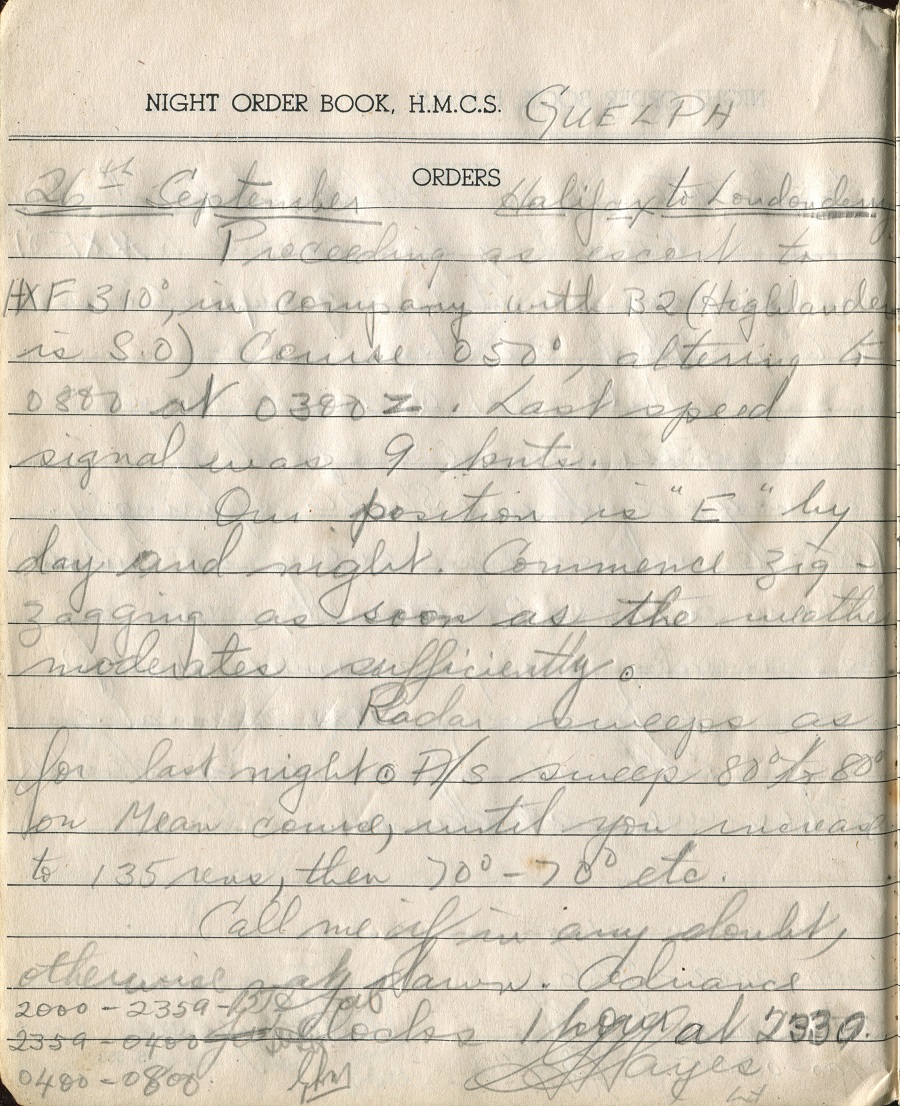 NIGHT ORDER BOOK, H.M.C.S. GUELPH
ORDERS
26th September Halifax to Londonderry
Proceeding as escort to
HXF 310, in company with B2 (Highlander
is S.O) Course 050°, altering to
at Z. Last speed
signal was 9 knts.
Our position is "E" by
day and night. Commence zig-
zagging as soon as the weather
moderates sufficiently.
Radar sweeps as
for last night. A/S sweep 80° to 80°
on Mean course, until you increase
to 135 revs, then 70° - 70° etc.
Call me if in any doubt,
otherwise at dawn. Advance
2000 - 2359 -
clocks 1 hour at 2330.
2359 - 0400
0400 - 0800
Hayes